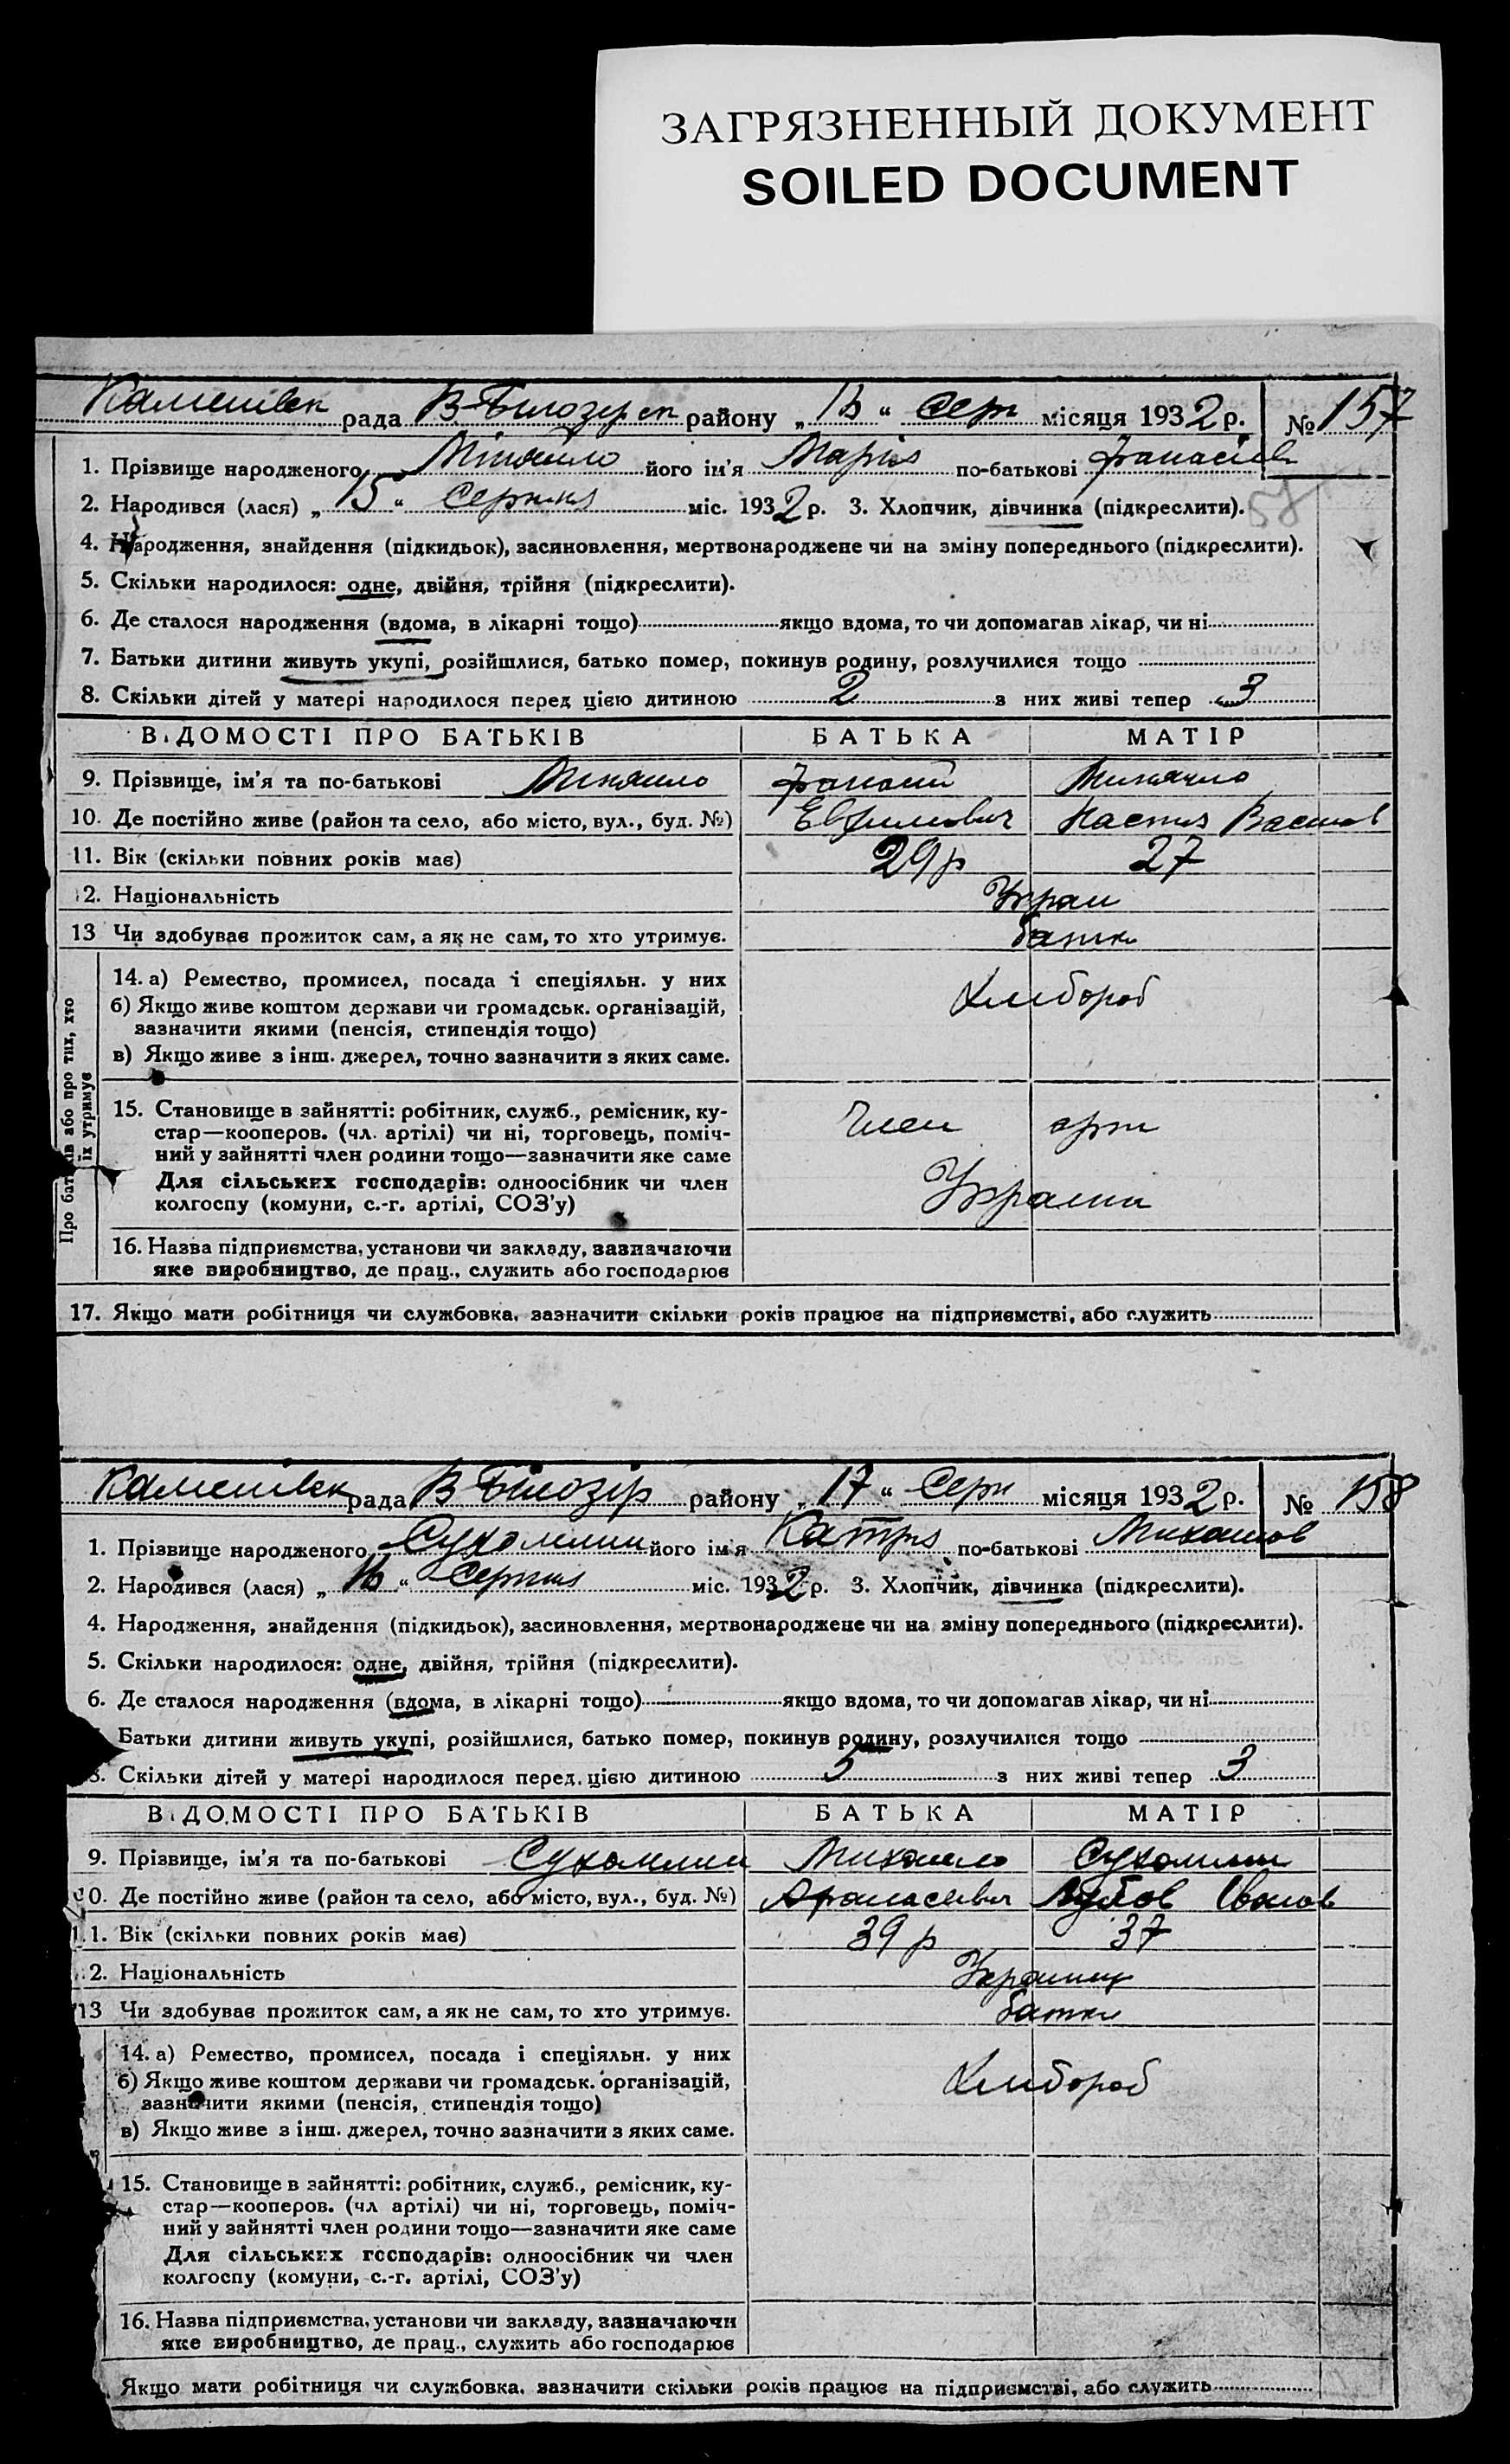 ЗАГРЯЗНЕННЫЙ ДОКУМЕНТ
SOILED DOCUMENT
Каменівск рада В-Білозерск району „ 16 “ серп місяця 1932 р. № 157
1. Прізвище народженого Міняйло його ім'я Марія по-батькові Фанасіев
2. Народився (лася) „ 15 “ Серпня міс. 1932 р. 3. Хлопчик, дівчинка (підкреслити). 58
4. Народження, знайдення (підкидьок), засиновлення, мертвонароджене чи на зміну попереднього (підкреслити).
5. Скільки народилося: одне, двійня, трійня (підкреслити).
6. Де сталося народження (вдома, в лікарні тощо) якщо вдома, то чи допомагав лікар, чи ні
7. Батьки дитини живуть укупі, розійшлися, батько помер, покинув родину, розлучилися тощо
8. Скільки дітей у матері народилося перед цією дитиною 2 з них живі тепер 3
ВІДОМОСТІ ПРО БАТЬКІВ БАТЬКА МАТІР
9. Прізвище, ім'я та по-батькові Миняйло Фанасий Миняйло
10. Де постійно живе (район та село, або місто, вул., буд. №) Евфимович Настя Васил
11. Вік (скільки повних років має) 29 р 27
2. Національність Украи
13 Чи здобуває прожиток сам, а як не сам, то хто утримує. батьк
Про батьків або про тих, хто їх утримує
14. а) Ремество, промисел, посада і спеціяльн. у них Хлибороб
б) Якщо живе коштом держави чи громадськ. організацій,
зазначити якими (пенсія, стипендія тощо)
в) Якщо живе з інш. джерел, точно зазначити з яких саме.
15. Становище в зайнятті: робітник, служб., ремісник, ку-
стар—кооперов. (чл. артілі) чи ні, торговець, поміч- Член арт
ний у зайнятті член родини тощо—зазначити яке саме
Для сільських господарів: одноосібник чи член Украина
колгоспу (комуни, с.-г. артілі, СОЗ'у)
16. Назва підприємства, установи чи закладу, зазначаючи
яке виробництво, де прац., служить або господарює
17. Якщо мати робітниця чи службовка, зазначити скільки років працює на підприємстві, або служить
Каменівск рада В-Білозір району „ 17 “ Серп місяця 1932 р. № 158
1. Прізвище народженого Сухомлин його ім'я Катря по-батькові Михайлов
2. Народився (лася) „ 16 “ Серпня міс. 1932 р. 3. Хлопчик, дівчинка (підкреслити).
4. Народження, знайдення (підкидьок), засиновлення, мертвонароджене чи на зміну попереднього (підкреслити).
5. Скільки народилося: одне, двійня, трійня (підкреслити).
6. Де сталося народження (вдома, в лікарні тощо) якщо вдома, то чи допомагав лікар, чи ні
Батьки дитини живуть укупі, розійшлися, батько помер, покинув родину, розлучилися тощо
8. Скільки дітей у матері народилося перед цією дитиною 5 з них живі тепер 3
ВІДОМОСТІ ПРО БАТЬКІВ БАТЬКА МАТІР
9. Прізвище, ім'я та по-батькові Сухомлин Михаило Сухомлин
10. Де постійно живе (район та село, або місто, вул., буд. №) Афанасевич Любов Іванов
11. Вік (скільки повних років має) 39 р 37
2. Національність Украинц
13 Чи здобуває прожиток сам, а як не сам, то хто утримує. батьки
14. а) Ремество, промисел, посада і спеціяльн. у них Хлибороб
б) Якщо живе коштом держави чи громадськ. організацій,
зазначити якими (пенсія, стипендія тощо)
в) Якщо живе з інш. джерел, точно зазначити з яких саме.
15. Становище в зайнятті: робітник, служб., ремісник, ку-
стар—кооперов. (чл артілі) чи ні, торговець, поміч-
ний у зайнятті член родини тощо—зазначити яке саме
Для сільських господарів: одноосібник чи член
колгоспу (комуни, с.-г. артілі, СОЗ'у)
16. Назва підприємства, установи чи закладу, зазначаючи
яке виробництво, де прац., служить або господарює
Якщо мати робітниця чи службовка, зазначити скільки років працює на підприємстві, або служить